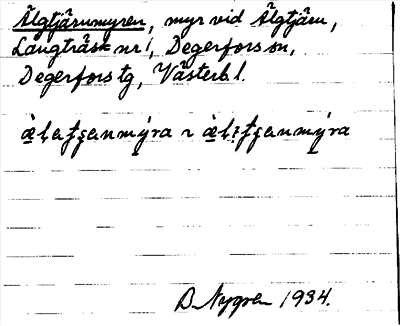 Älgtjärnmyren, myr vid Älgtjärn,
Långträsk nr 1, Degerfors sn,
Degerfors tg, Västerb. l.
æ̀latʂanmýra ~ æ̀lᵢtʂanmýra
B. Nygren 1934.